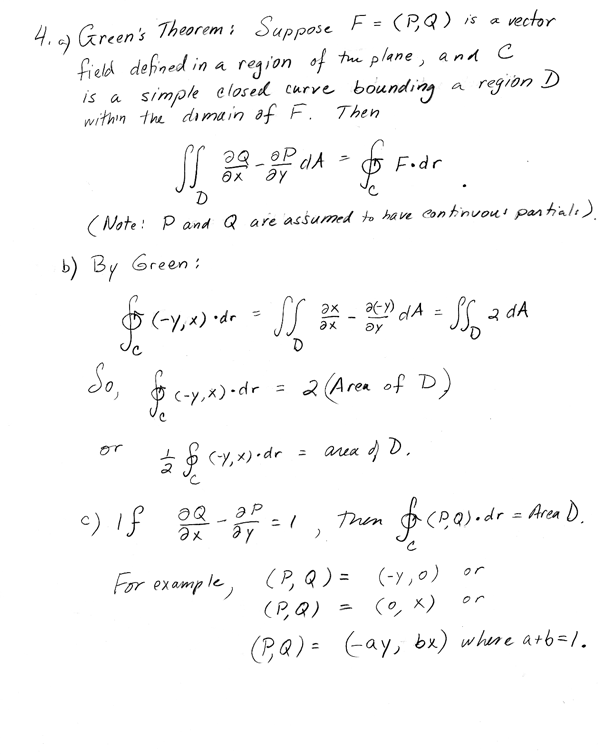 4. a) Green's Theorem: Suppose F = (P,Q) is a vector
field defined in a region of the plane, and C
is a simple closed curve bounding a region D
within the domain of F. Then
∬_D ∂Q/∂x - ∂P/∂y dA = ∮_C F·dr .
(Note: P and Q are assumed to have continuous partials).
b) By Green:
∮_C (-y,x)·dr = ∬_D ∂x/∂x - ∂(-y)/∂y dA = ∬_D 2 dA
So, ∮_C (-y,x)·dr = 2(Area of D)
or 1/2 ∮_C (-y,x)·dr = area of D.
c) If ∂Q/∂x - ∂P/∂y = 1, then ∮_C (P,Q)·dr = Area D.
For example, (P,Q) = (-y,0) or
(P,Q) = (0,x) or
(P,Q) = (-ay, bx) where a+b=1.